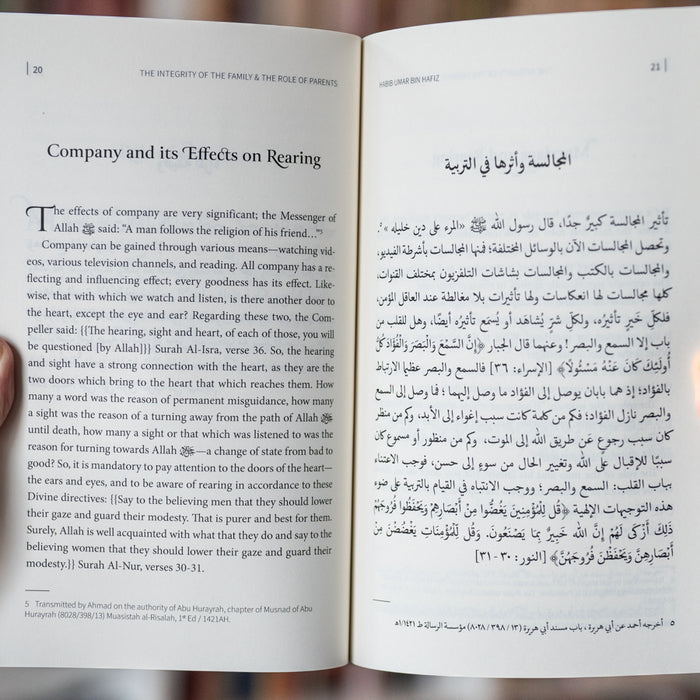 | 20
THE INTEGRITY OF THE FAMILY & THE ROLE OF PARENTS
Company and its Effects on Rearing
The effects of company are very significant; the Messenger of
Allah ﷺ said: “A man follows the religion of his friend...”⁵
Company can be gained through various means—watching vid-
eos, various television channels, and reading. All company has a re-
flecting and influencing effect; every goodness has its effect. Like-
wise, that with which we watch and listen, is there another door to
the heart, except the eye and ear? Regarding these two, the Com-
peller said: {{The hearing, sight and heart, of each of those, you will
be questioned [by Allah]}} Surah Al-Isra, verse 36. So, the hearing
and sight have a strong connection with the heart, as they are the
two doors which bring to the heart that which reaches them. How
many a word was the reason of permanent misguidance, how many
a sight was the reason of a turning away from the path of Allah ﷻ
until death, how many a sight or that which was listened to was the
reason for turning towards Allah ﷻ—a change of state from bad to
good? So, it is mandatory to pay attention to the doors of the heart—
the ears and eyes, and to be aware of rearing in accordance to these
Divine directives: {{Say to the believing men that they should lower
their gaze and guard their modesty. That is purer and best for them.
Surely, Allah is well acquainted with what that they do and say to the
believing women that they should lower their gaze and guard their
modesty.}} Surah Al-Nur, verses 30-31.
5 Transmitted by Ahmad on the authority of Abu Hurayrah, chapter of Musnad of Abu
Hurayrah (8028/398/13) Muasistah al-Risalah, 1st Ed / 1421AH.
HABIB UMAR BIN HAFIZ
21 |
المجالسة وأثرها في التربية
تأثير المجالسة كبيرٌ جدًا، قال رسول الله ﷺ «المرء على دين خليله»⁵.
وتحصل المجالسات الآن بالوسائل المختلفة؛ فمنها المجالسات بأشرطة الفيديو،
والمجالسات بالكتب والمجالسات بشاشات التلفزيون بمختلف القنوات،
كلها مجالسات لها انعكاسات ولها تأثيرات بلا مغالطة عند العاقل المؤمن،
فلكلِّ خيرٍ تأثيرُه، ولكلِّ شرٍّ يُشاهَد أو يُسمَع تأثيره أيضًا، وهل للقلب من
باب إلا السمع والبصر! وعنهما قال الجبار ﴿إِنَّ السَّمْعَ وَالْبَصَرَ وَالْفُؤَادَ كُلُّ
أُولَئِكَ كَانَ عَنْهُ مَسْئُولًا﴾ [الإسراء: ٣٦] فالسمع والبصر عظيما الارتباط
بالفؤاد؛ إذ هما بابان يوصل إلى الفؤاد ما وصل إليهما؛ فما وصل إلى السمع
والبصر نازل الفؤاد؛ فكم من كلمة كانت سبب إغواء إلى الأبد، وكم من منظر
كان سبب رجوعٍ عن طريق الله إلى الموت، وكم من منظور أو مسموع كان
سببًا للإقبال على الله وتغيير الحال من سوءٍ إلى حسن، فوجب الاعتناء
بباب القلب: السمع والبصر؛ ووجب الانتباه في القيام بالتربية على ضوء
هذه التوجيهات الإلهية ﴿قُل لِّلْمُؤْمِنِينَ يَغُضُّوا مِنْ أَبْصَارِهِمْ وَيَحْفَظُوا فُرُوجَهُمْ
ذَلِكَ أَزْكَى لَهُمْ إِنَّ اللَّهَ خَبِيرٌ بِمَا يَصْنَعُونَ. وَقُل لِّلْمُؤْمِنَاتِ يَغْضُضْنَ مِنْ
أَبْصَارِهِنَّ وَيَحْفَظْنَ فُرُوجَهُنَّ﴾ [النور: ٣٠-٣١]
٥ أخرجه أحمد عن أبي هريرة، باب مسند أبي هريرة (١٣ / ٣٩٨ / ٨٠٢٨) مؤسسة الرسالة ط ١/١٤٢١هـ